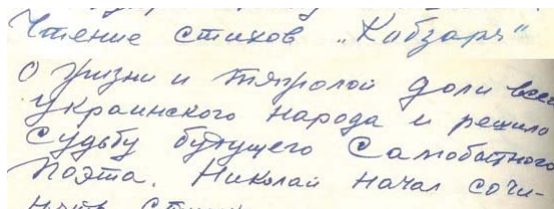 Чтение стихов „Кобзаря“
О жизни и тяжолой доли всего
украинского народа и решило
судьбу будущего самобытного
поэта. Николай начал сочи-
нять стихи